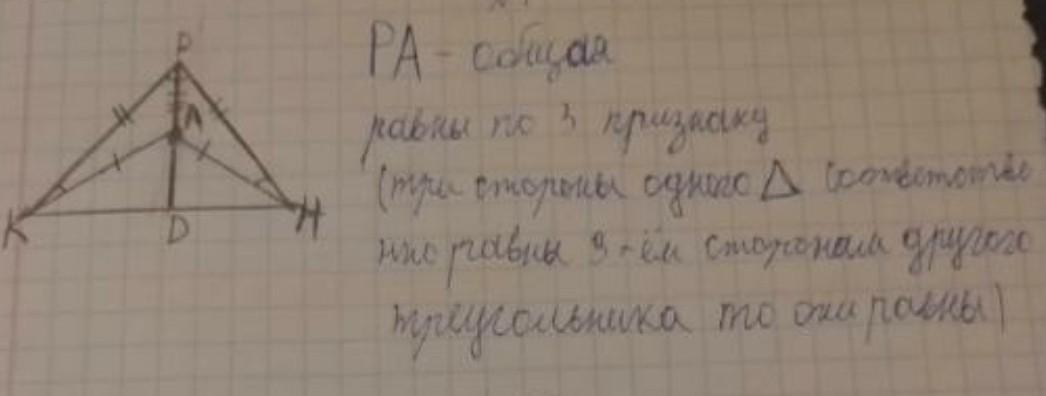 P
A
K
D
H
PA - общая
равны по 3 признаку
(три стороны одного Δ соответстве
нно равны 3-ём сторонам другого
треугольника то они равны)